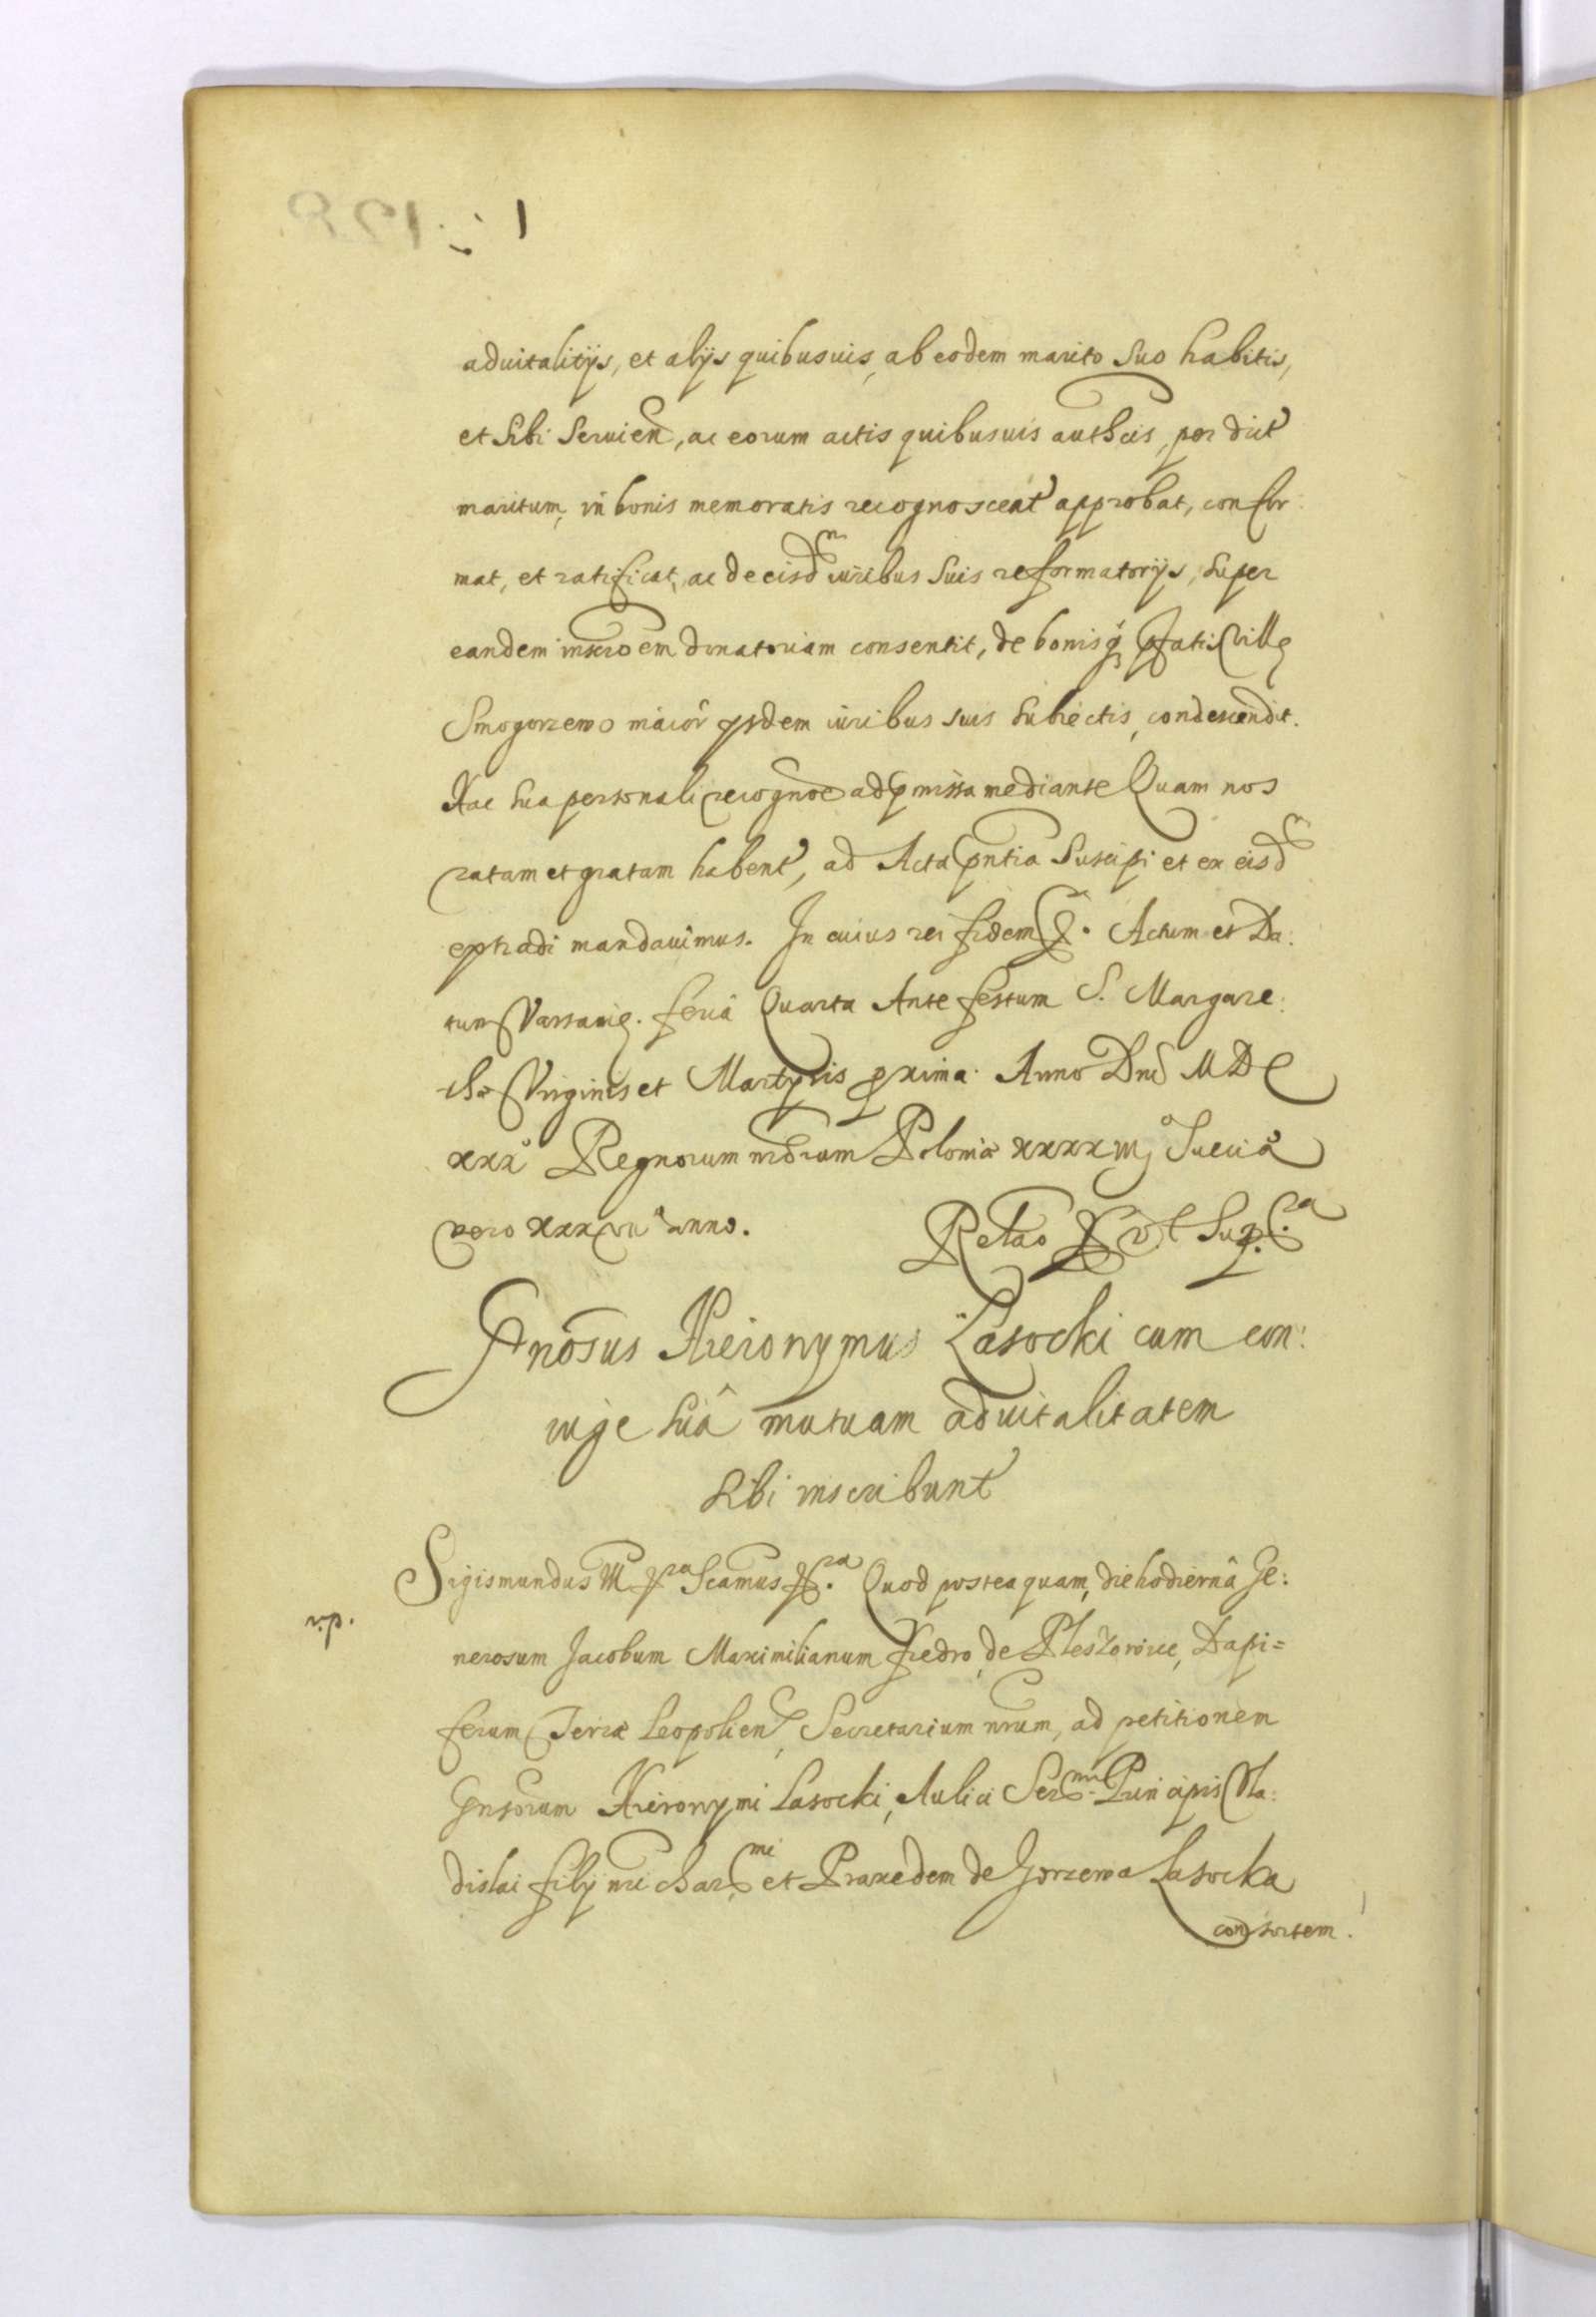 aduitalitijs, et alijs quibusuis, ab eodem marito suo habitis,
et sibi seruien, ac eorum actis quibusuis authcis, per dict
maritum, in bonis memoratis recognosceat approbat, confir:
mat, et ratificat, ac de eisdm iuribus suis reformatorijs, super
eandem inscroem donatoriam consentit, de bonisq pfatis villę
Smogorzewo maior ysdem iuribus suis subiectis, condescendit.
Hac sua personali recognoe ad pmissa mediante Quam nos
ratam et gratam habent, ad Acta pntia suscipi et ex eisdm
extradi mandauimus. In cuius rei fidem &. Actum et Da:
tum Varsauię. feria Quarta Ante festum S. Margare:
thæ Virginis et Martyris pxima. Anno Dni MDC
xxx Regnorum nrorum Poloniæ xxxxiij Sueciæ
vero xxxvii anno. Relao vt supra
Gnosus Hieronymus Lasocki cum con:
iuge suâ mutuam aduitalitatem
sibi inscribunt
Sigismundus III &ra Scamus &ra. Quod posteaquam, die hodiernâ Ge:
v.p.
nerosum Jacobum Maximilianum Fredro, de Pleszowice, Dapi=
ferum Terræ Leopolien, Secretarium nrum, ad petitionem
Gnsorum Hieronymi Lasocki, Aulici Sermi Principis Vla:
dislai filij nri charmi et Praxedem de Gorzewa Lasocka
consortem.